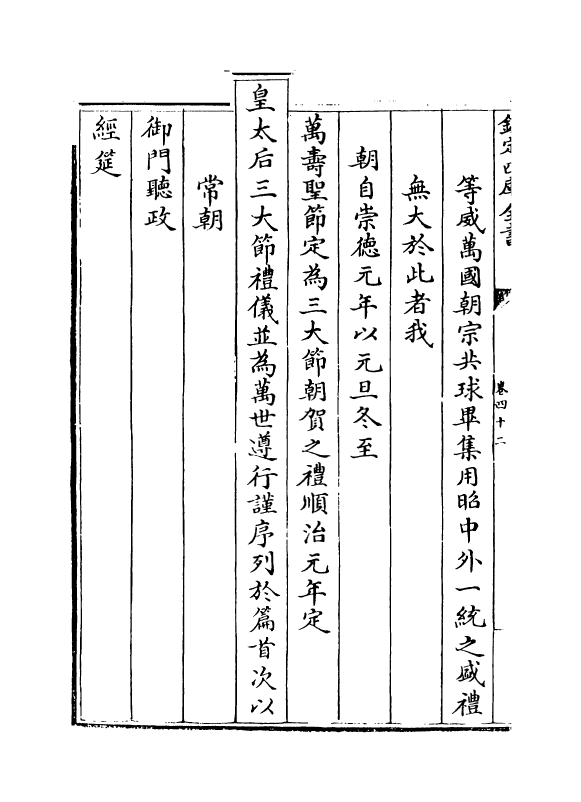 欽定四庫全書
卷四十二
等威萬國朝宗共球畢集用昭中外一統之盛禮
無大於此者我
朝自崇徳元年以元旦冬至
萬壽聖節定為三大節朝賀之禮順治元年定
皇太后三大節禮儀並為萬世遵行謹序列於篇首次以
常朝
御門聽政
經筵